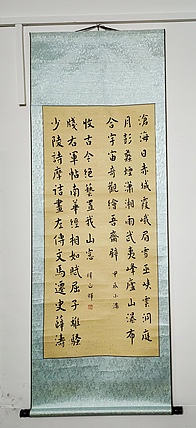 滄海日赤城霞峨眉雪巫峽雲洞庭
月彭蠡煙瀟湘雨武夷峰廬山瀑布
合宇宙奇觀繪吾齋壁
甲戌小滿
少陵詩摩詰畫左傳文馬遷史薛濤
箋右軍帖南華經相如賦屈子離騷
收古今絕藝置我山窗